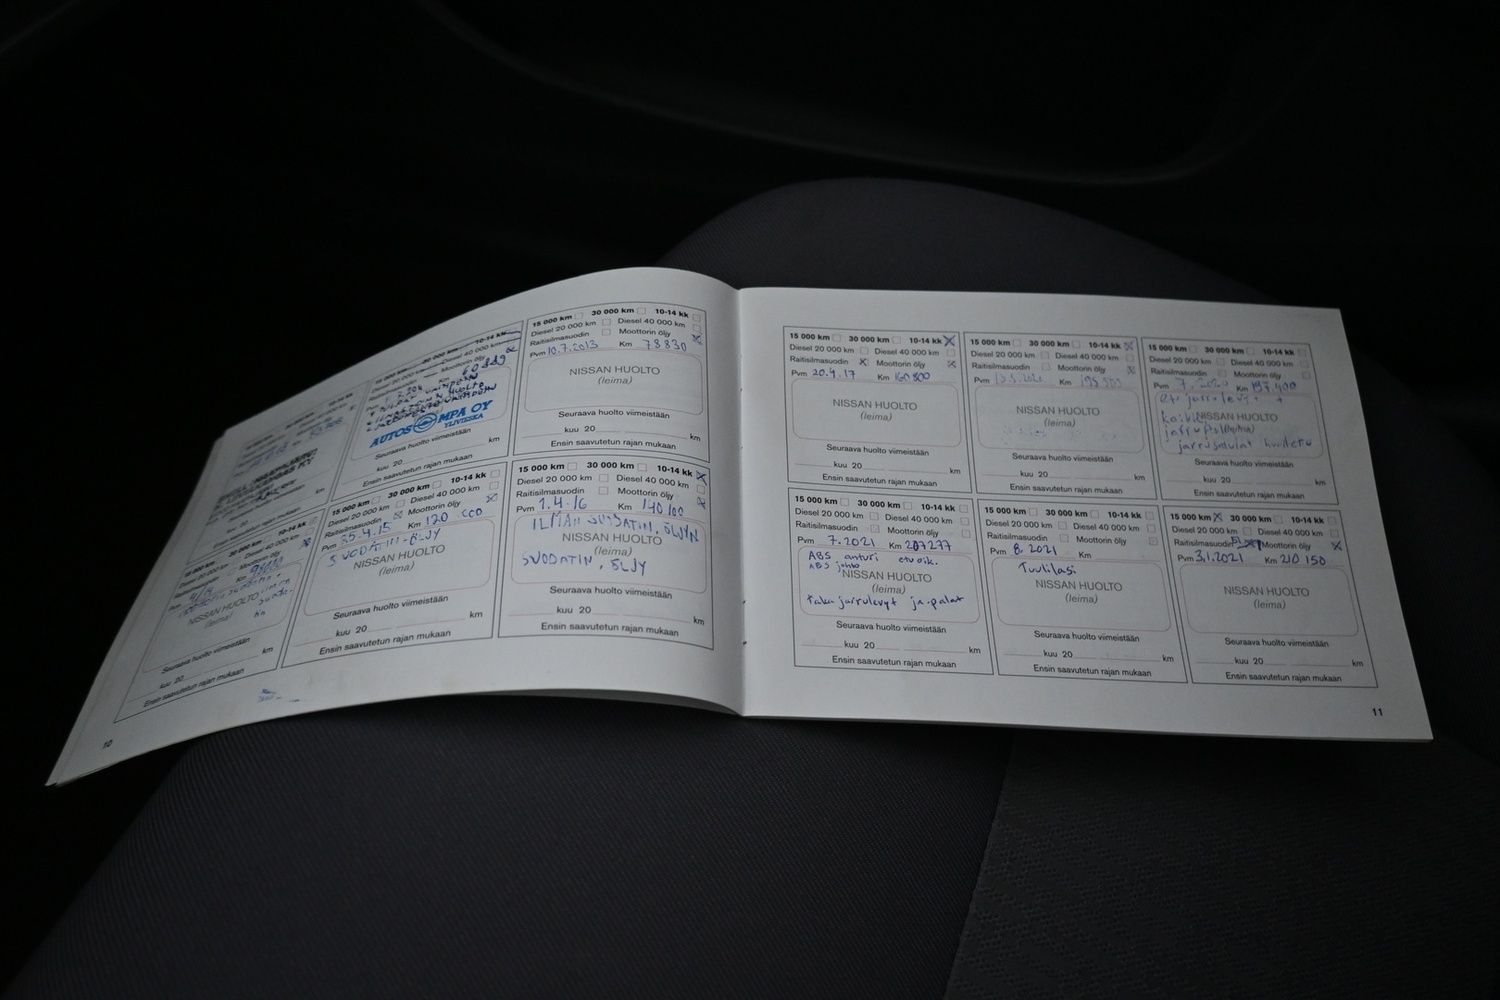 10-14 kk
Moottorin öljy
60 889
AUTOS MPA OY
YLIVIESKA
Seuraava huolto viimeistään
kuu 20 km
Ensin saavutetun rajan mukaan
15 000 km 30 000 km 10-14 kk
Diesel 20 000 km Diesel 40 000 km
Raitisilmasuodin Moottorin öljy
Pvm 10.7.2013 Km 78830
NISSAN HUOLTO
(leima)
Seuraava huolto viimeistään
kuu 20 km
Ensin saavutetun rajan mukaan
30 000 km 10-14 kk
Diesel 40 000 km
Moottorin öljy
Km
NISSAN HUOLTO
(leima)
Seuraava huolto viimeistään
kuu 20 km
Ensin saavutetun rajan mukaan
15 000 km 30 000 km 10-14 kk
Diesel 20 000 km Diesel 40 000 km
Raitisilmasuodin Moottorin öljy
Pvm 25.4.15 Km 120 000
SUODATIN-ÖLJY
NISSAN HUOLTO
(leima)
Seuraava huolto viimeistään
kuu 20 km
Ensin saavutetun rajan mukaan
15 000 km 30 000 km 10-14 kk
Diesel 20 000 km Diesel 40 000 km
Raitisilmasuodin Moottorin öljy
Pvm 1.4.16 Km 140 100
ILMAN SUODATIN, ÖLJYN
NISSAN HUOLTO
(leima)
SUODATIN, ÖLJY
Seuraava huolto viimeistään
kuu 20 km
Ensin saavutetun rajan mukaan
10
15 000 km 30 000 km 10-14 kk
Diesel 20 000 km Diesel 40 000 km
Raitisilmasuodin Moottorin öljy
Pvm 20.4.17 Km 160 800
NISSAN HUOLTO
(leima)
Seuraava huolto viimeistään
kuu 20 km
Ensin saavutetun rajan mukaan
15 000 km 30 000 km 10-14 kk
Diesel 20 000 km Diesel 40 000 km
Raitisilmasuodin Moottorin öljy
Pvm Km
NISSAN HUOLTO
(leima)
Seuraava huolto viimeistään
kuu 20 km
Ensin saavutetun rajan mukaan
15 000 km 30 000 km 10-14 kk
Diesel 20 000 km Diesel 40 000 km
Raitisilmasuodin Moottorin öljy
Pvm 7.2020 Km 197.400
Etu jarrulevyt +
NISSAN HUOLTO
(leima)
jarrusatulat huollettu
Seuraava huolto viimeistään
kuu 20 km
Ensin saavutetun rajan mukaan
15 000 km 30 000 km 10-14 kk
Diesel 20 000 km Diesel 40 000 km
Raitisilmasuodin Moottorin öljy
Pvm 7.2021 Km 207277
ABS anturi etuoik.
ABS johto
NISSAN HUOLTO
(leima)
Taka jarrulevyt ja-palat
Seuraava huolto viimeistään
kuu 20 km
Ensin saavutetun rajan mukaan
15 000 km 30 000 km 10-14 kk
Diesel 20 000 km Diesel 40 000 km
Raitisilmasuodin Moottorin öljy
Pvm 8.2021 Km
Tuulilasi
NISSAN HUOLTO
(leima)
Seuraava huolto viimeistään
kuu 20 km
Ensin saavutetun rajan mukaan
15 000 km 30 000 km 10-14 kk
Diesel 20 000 km Diesel 40 000 km
Raitisilmasuodin Moottorin öljy
Pvm 3.1.2021 Km 210 150
NISSAN HUOLTO
(leima)
Seuraava huolto viimeistään
kuu 20 km
Ensin saavutetun rajan mukaan
11